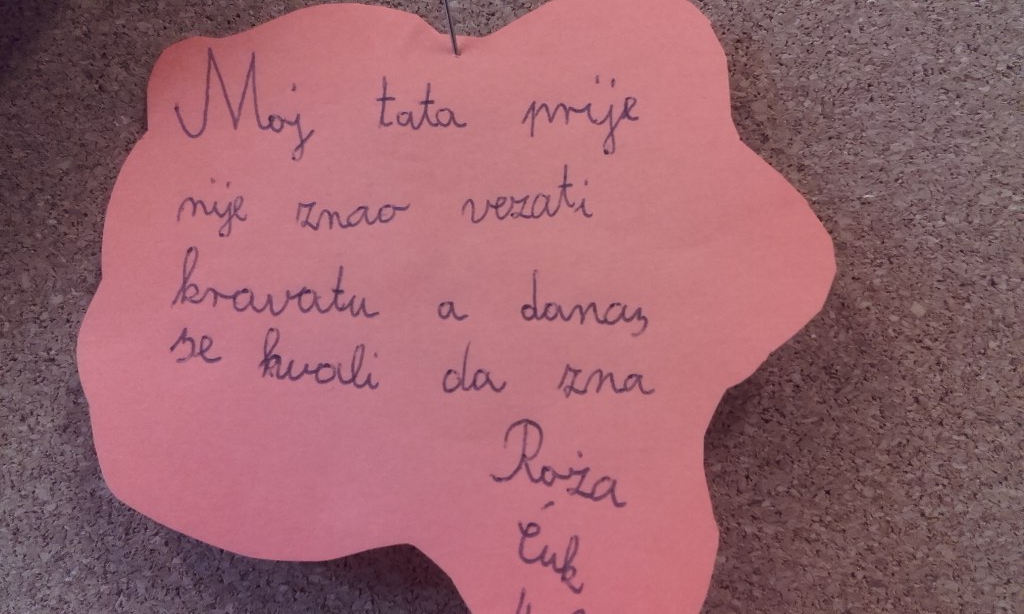 Moj tata prije
nije znao vezati
kravatu a danas
se hvali da zna
Roža
Ćuk